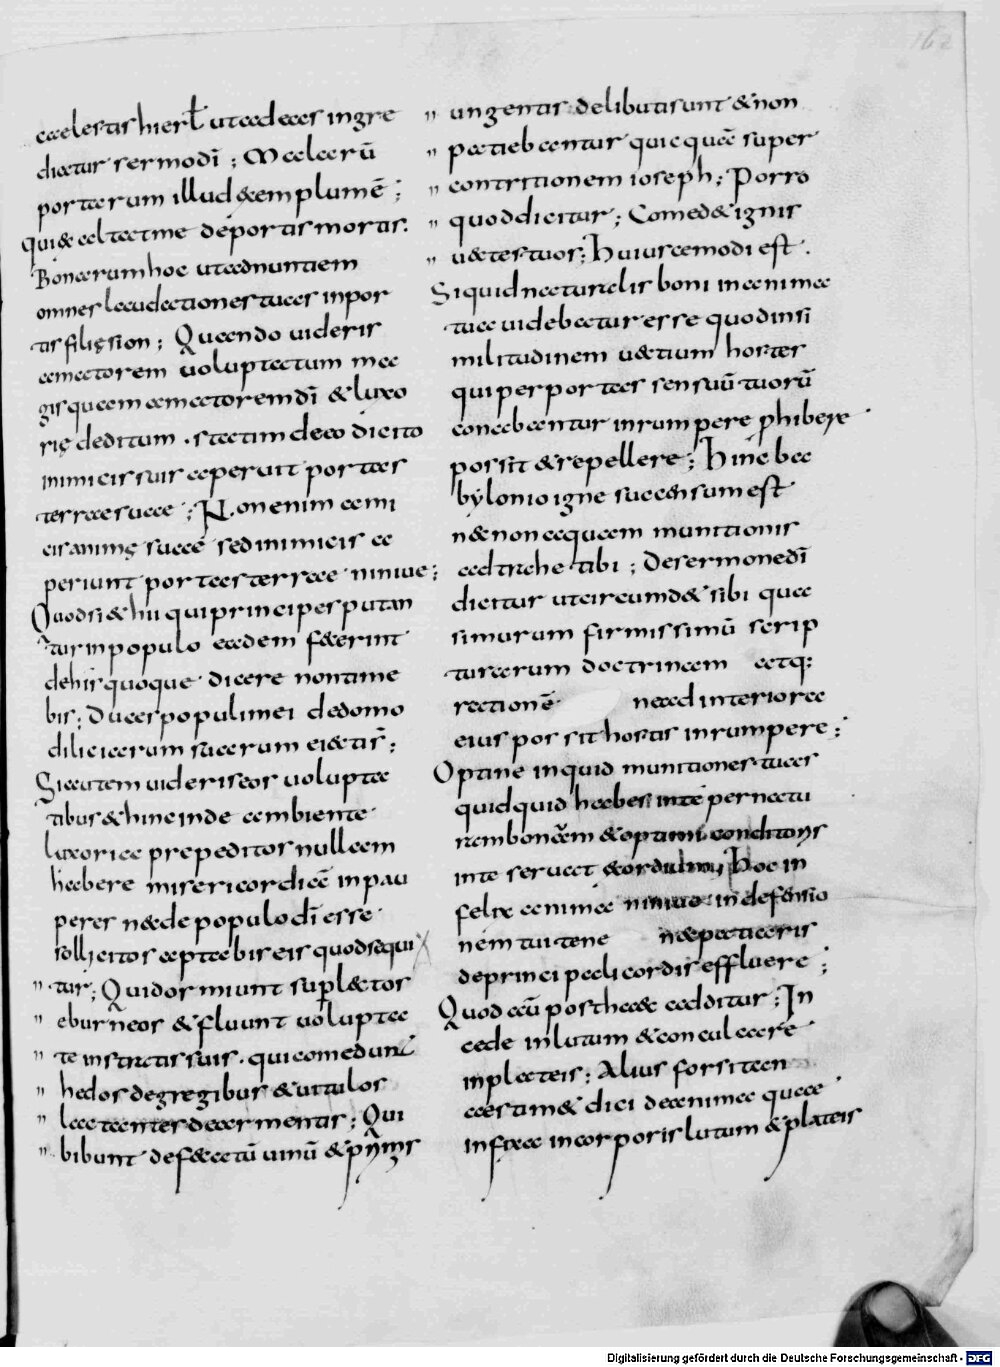 162
caelestis hierł ut ad eas ingre
diatur sermo dī ; Malarū
portarum illud exemplum ē ;
qui exaltas me de portis mortis.
Bonarum hoc ut adnuntiem
omnes laudationes tuas in por
tis filię sion ; Quando uideris
amatorem uoluptatum ma
gis quam amatorem dī & luxo
rię deditum . statim de eo dicito
inimicis suis aperuit portas
terrae suae ; Non enim ami
cis animę suae sed inimicis a
periunt portas terrae niniue ;
Quod si & hii qui principes putan
tur in populo eadem fecerint
de his quoque dicere non time
bis ; Duces populi mei de domo
diliciarum suarum eiectis ;
Si autem uideris eos uolupta
tibus & hinc inde ambiente
luxoria prepeditos nullam
habere misericordiā in pau
peres nec de populo dī esse
sollicitos aptabis eis quod sequi
tur ; Qui dormiunt sup lectos
eburneos & fluunt uolupta
te in stratis suis . qui comedunt
hedos de gregibus & uitulos
lactantes de armentis ; Qui
bibunt defecatū uinū & primis
ungentis delibuti sunt & non
patiebantur quicquā super
contritionem ioseph ; Porro
quod dicitur ; Comedet ignis
uectes tuos ; Huiuscemodi est .
Si quid naturalis boni in anima
tua uidebatur esse quod in si
militudinem uectium hostes
qui per portas sensuū tuorū
conabantur inrumpere phibere
possit & repellere ; Hinc ba
bylonio igne succensum est
ne non aquam munitionis
ad trahe tibi ; De sermone dī
dicitur ut circumdet sibi qua
si murum firmissimū scrip
turarum doctrinam atq;
rectionē ne ad interiora
eius possit hostis inrumpere ;
Optine inquid munitiones tuas
quidquid habes in te per natu
ram bonam & optimi conditoris
in te seruat
Hoc in
felix anima niniue in defensio
nem tui tene nec patiaris
de principali cordis effluere ;
Quod cū post haec additur ; In
cede in lutum & conculcare
in plateis ; Alius forsitan
aestimet dici de anima quae
infixa in corporis lutum & plateis
Digitalisierung gefördert durch die Deutsche Forschungsgemeinschaft - DFG